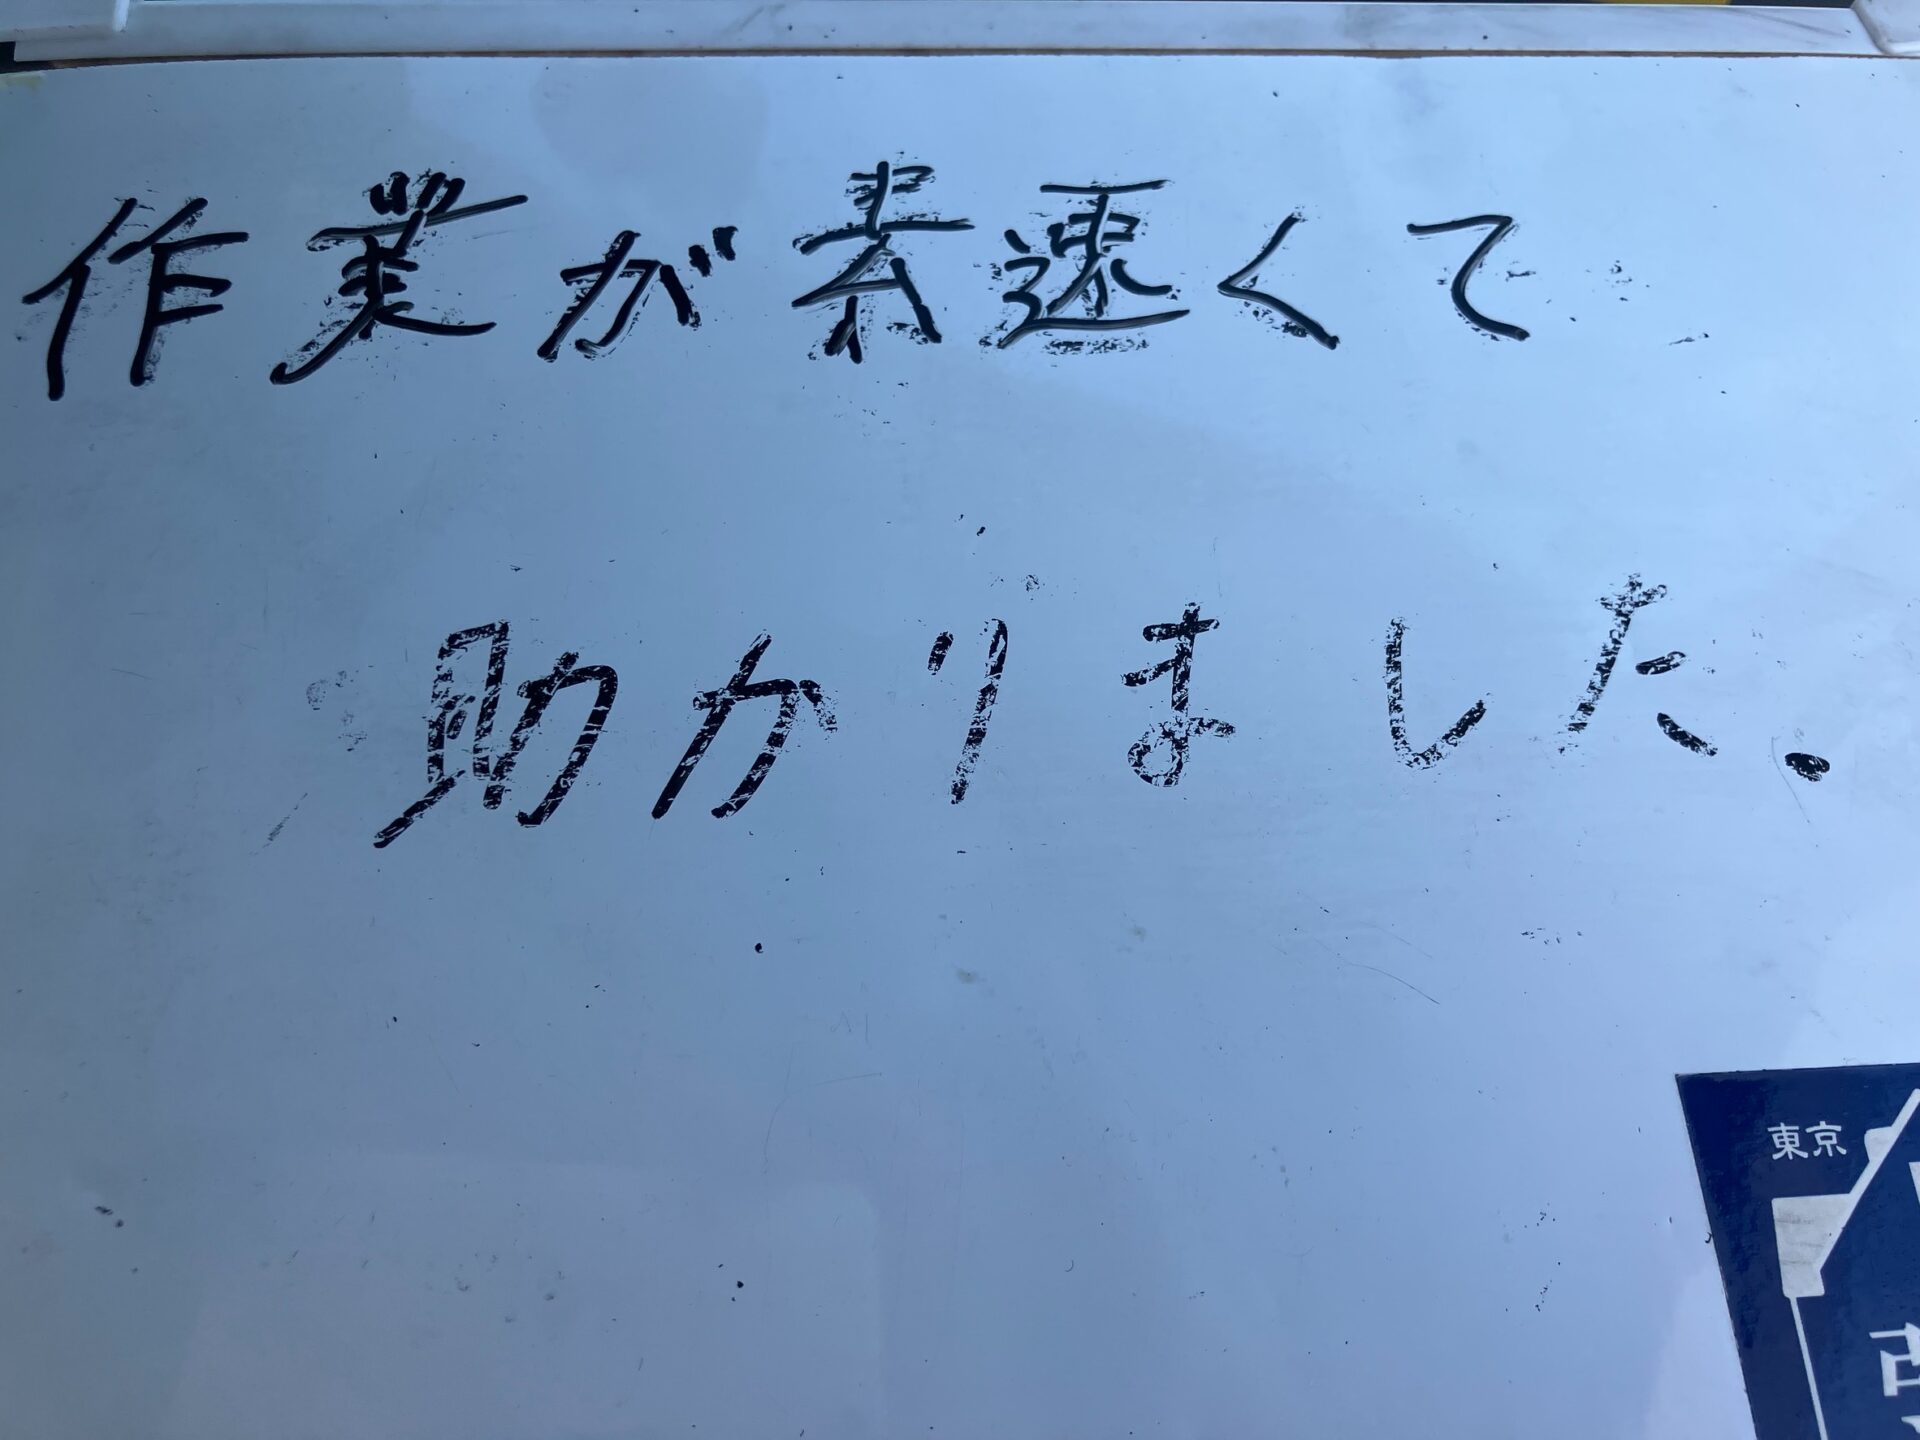 作業が素速くて
助かりました.
東京